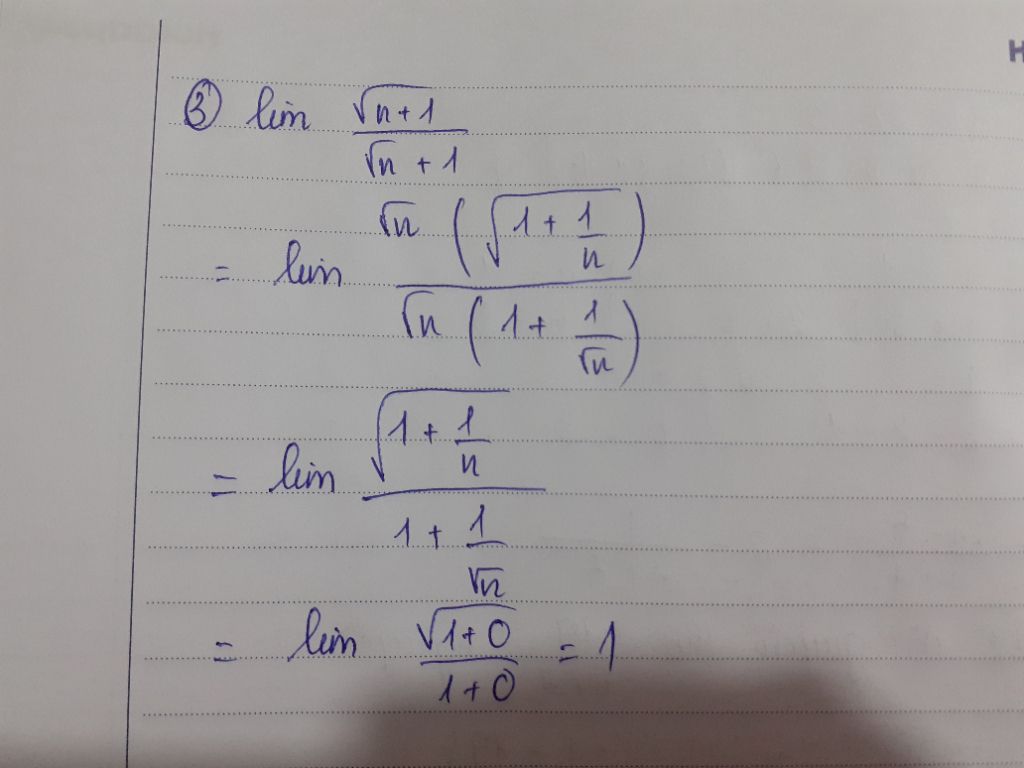 ③ lim √(n+1) / (√n + 1)
= lim √n (√(1 + 1/n)) / √n (1 + 1/√n)
= lim √(1 + 1/n) / (1 + 1/√n)
= lim √(1+0) / (1+0) = 1
H